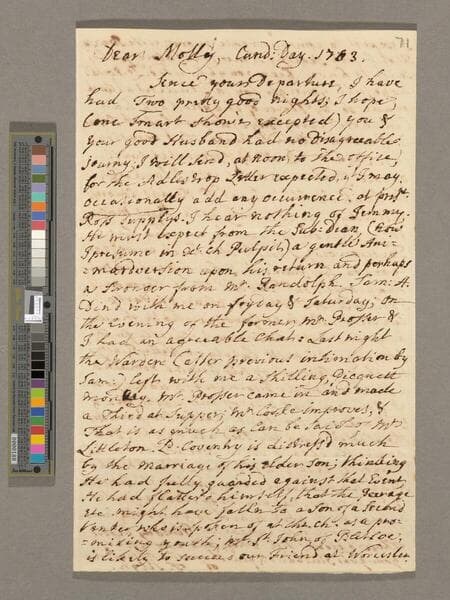 71
Dear Molly, Cand: Day. 1783.
Sence your Departure, I have
had Two pretty good nights; I hope,
(some smart showers excepted) you &
your good Husband had no Disagreeable
Journy. I will send, at noon, to the office,
for the Adlestrop Letter expected, & I may
occasionally add any occurrence. at
Ross supplys. I hear nothing of Jemmy.
He must expect from the Sub: Dean, (now
I presume in Ch Pulpit,) a gentle Ani-
=madversion upon his return and perhaps
a stronger from Mr. Randolph. Sam: A.
Din'd with me on fryday & Saturday; on
the Evening of the former, Mr. Prosser &
I had an agreeable Chat: Last night
the Warden (after previous intimation by
Sam:) left with me a shilling, Picquett
money. Mr. Prosser came in and made
a Third at Supper; Mr. Cooke improves, &
That is as much as Can be said of Mr.
Littleton. Ld. Coventry is distress'd much
by the Marriage of his elder Son; thinking
He had fully guarded against that Event,
He had flatter'd himself, that the Peerage
&c. might have fall'n to a Son of a Second
Venter who is spoken of at the Ch. as a pro-
=mising youth; Mr. St. John, of
is likely to succeed our Friend at Worcester